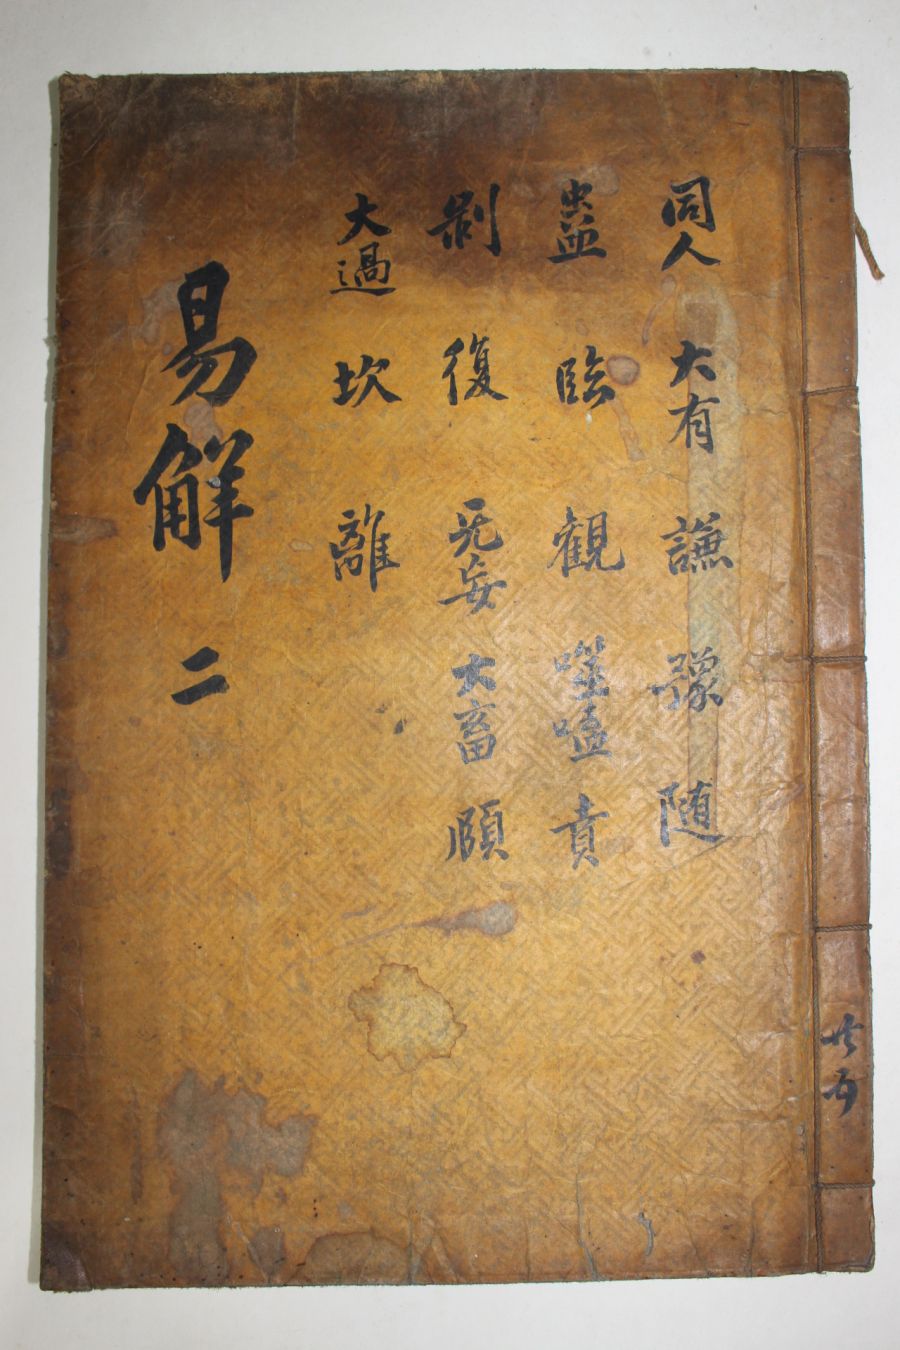 同人 大有 謙 豫 随
蛊 臨 觀 噬嗑 賁
剝 復 无妄 大畜 頤
大過 坎 離
易解 二